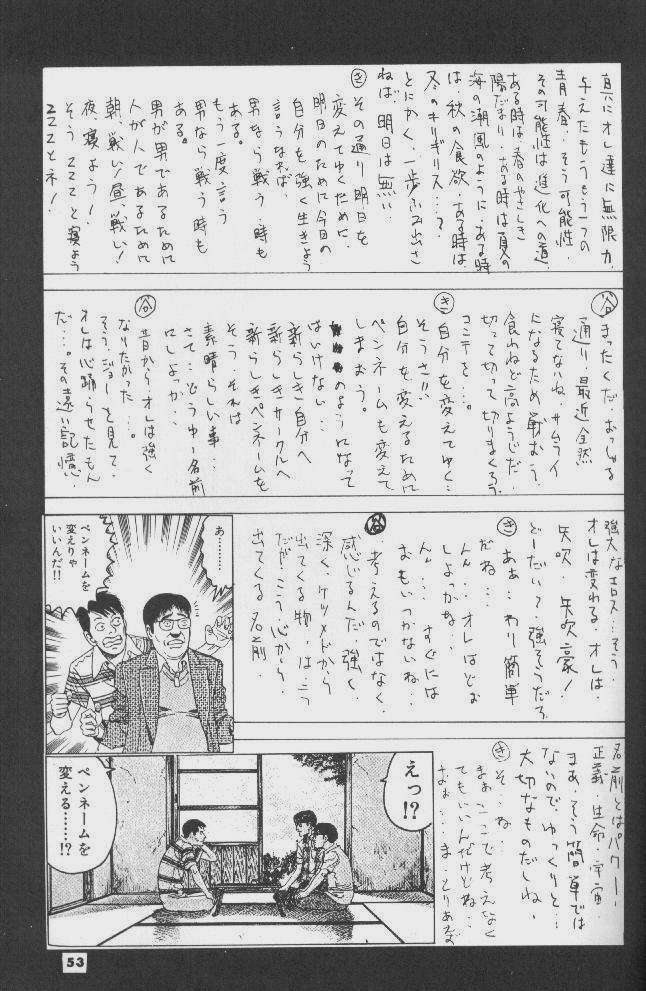 真にオレ達に無限力、
与えたもうもう一つの
青春、そう可能性、
その可能性は進化への道、
ある時は春のやさしき
陽だまり、ある時は夏の
海の潮風のように、ある時
は、秋の食欲、ある時は
冬のキリギリス…?
とにかく、一歩ふみ出さ
ねば明日は無い…
き その通り明日を
変えてゆくために、
明日のために今日の
自分を強く生きよう
言うなれば、
男なら戦う時も
ある。
もう一度言う
男なら戦う時も
ある。
男が男であるために
人が人であるために
朝、戦い!昼、戦い!
夜寝よう!
そうZZZと寝よう
ZZZとネ!
まったくだおっしゃる
通り、最近全然
寝てないね、サムライ
になるため戦おう、
食わねど高ようじだ、
切って切って切りまくろう、
コンテを…。
き 自分を変えてゆく…
そうさ!!
自分を変えるために
ペンネームも変えて
しまおう。
のようになって
はいけない…
新らしき自分へ
新らしきサークルへ
新らしきペンネームを
そう、それは
素晴らしい事…
さて…どうゆー名前
にしよっか、
昔からオレは強く
なりたかった…
そう、ジョーを見て、
オレは心踊らせたもん
だ…。その遠い記憶
強大なエロス…そう、
オレは変わる、オレは、
矢吹、矢吹豪!
どーだい?強そうだろ
き ああ…わり簡単
だね…
んん…オレはどお
しよっかな…
んん…すぐには
おもいつかないね、
考えるのではなく、
感じるんだ、強く、
深く、ケツメドから
出てくる物、はこう
だが…こう、心から
出てくる名前、
あ……
ペンネームを
変えりゃ
いいんだ!!
名前とはパワー、
正義、生命、宇宙
まあ、そう簡単では
ないので、ゆっくりと…
大切なものだしね、
き そ、ね、
まぁ、ここで考えなく
てもいいんだけどね…
おぉ…ま、とりあえず
えっ!?
ペンネームを
変える……!?
53